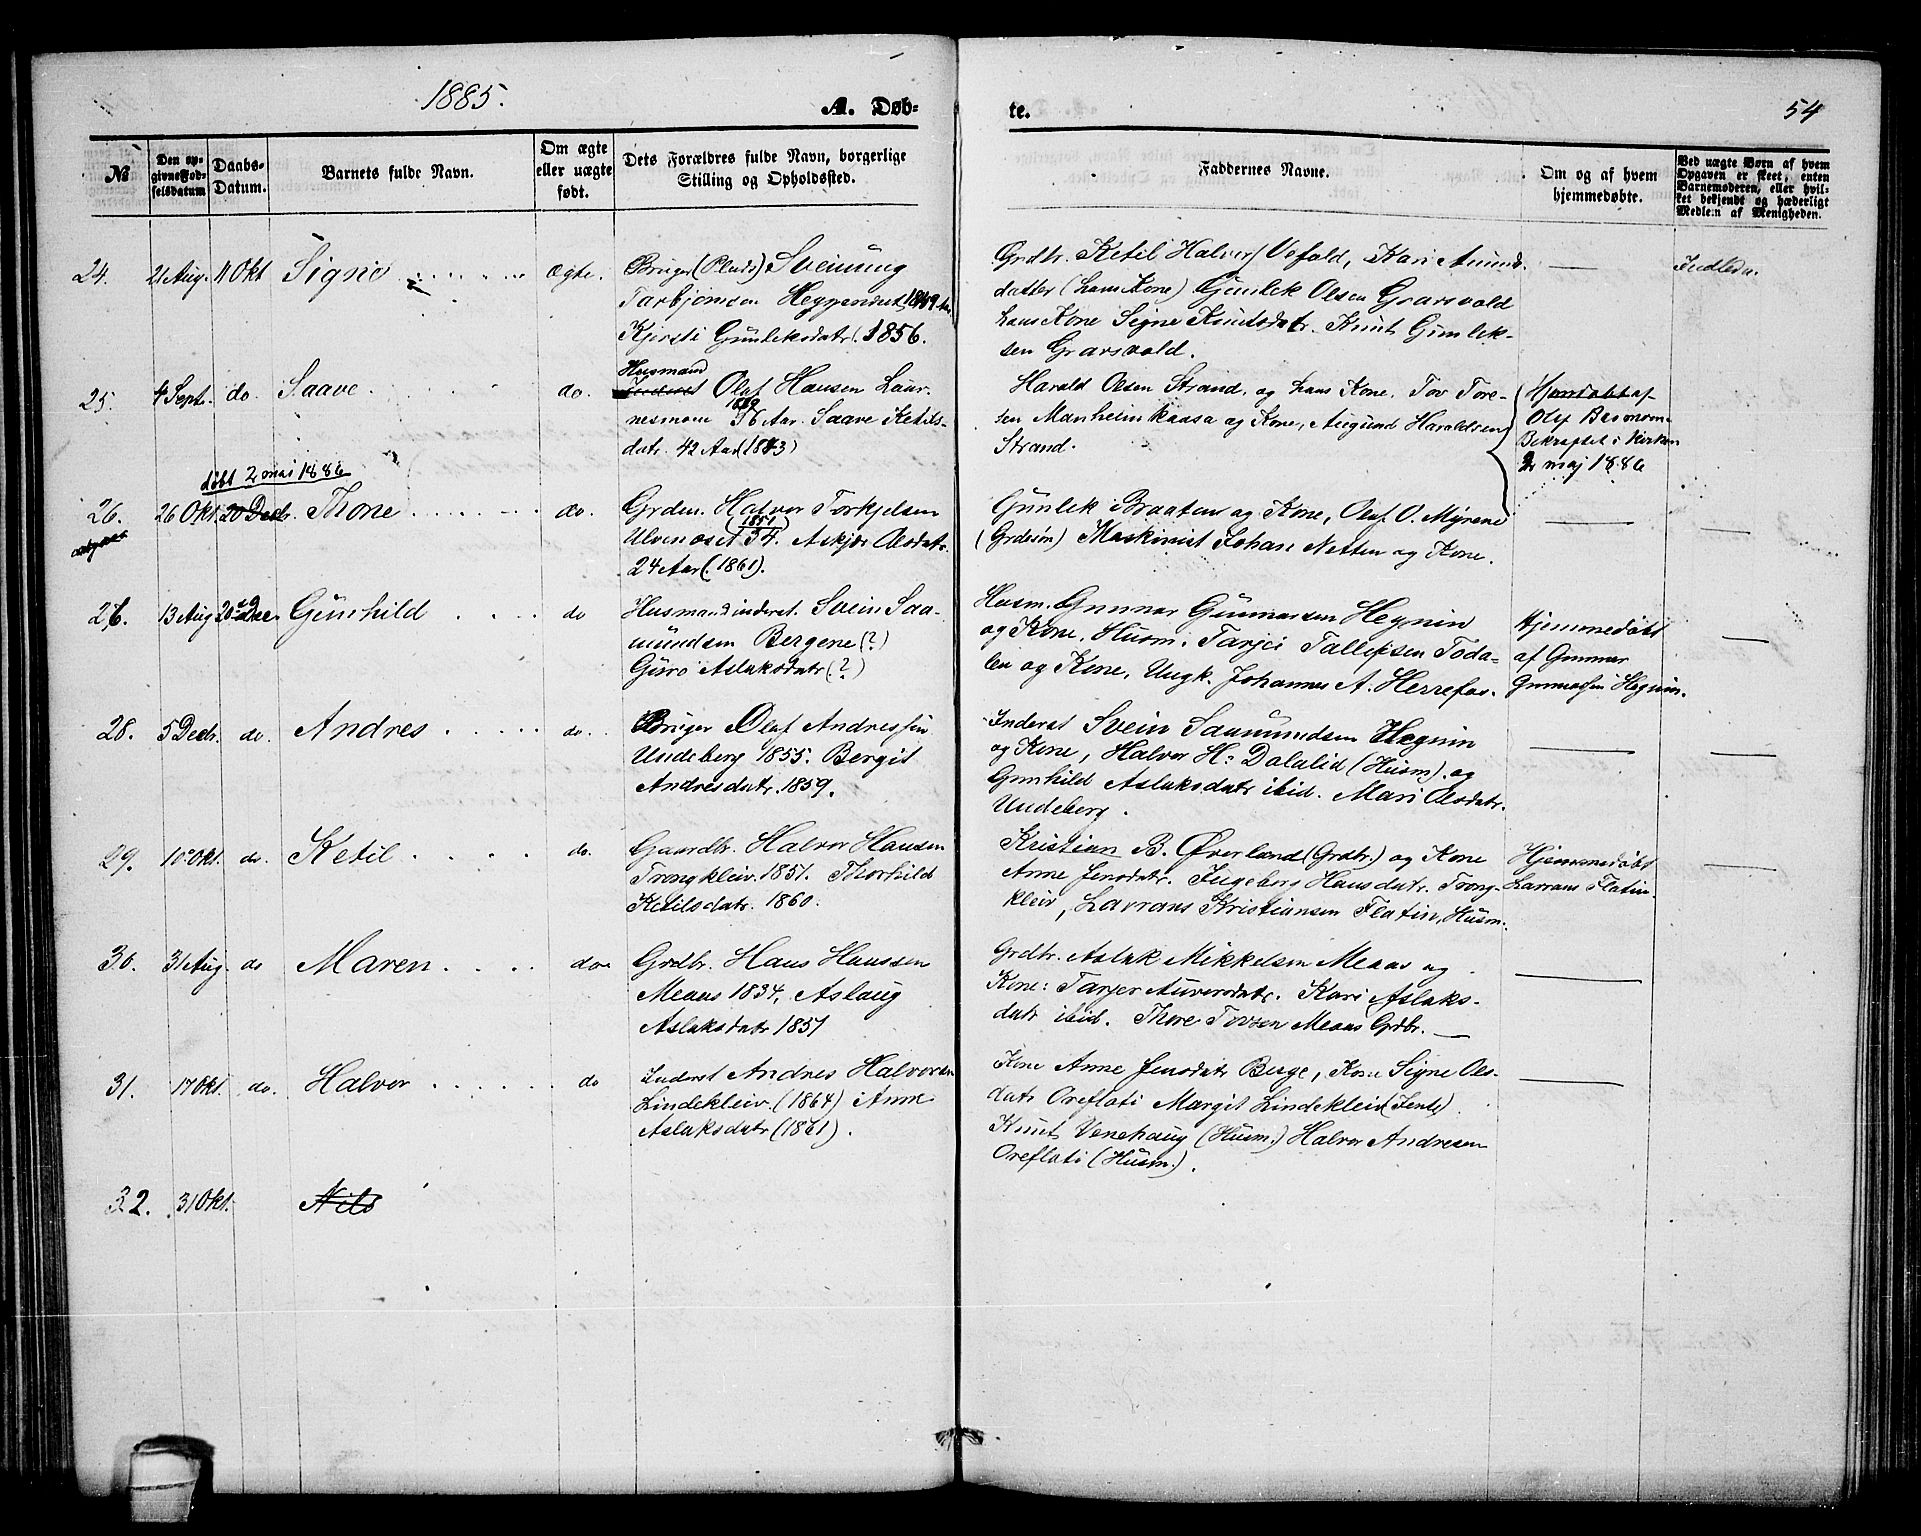 1885.
A. Døb-
te.
54
№
Den op-
givne Fød-
selsdatum
Daabs-
Datum.
Barnets fulde Navn.
Om ægte
eller uægte
født.
Dets Forældres fulde Navn, borgerlige
Stilling og Opholdssted.
Faddernes Navne.
Om og af hvem
hjemmedøbte.
Ved uægte Børn af hvem
Opgaven er skeet, enten
Barnemoderen, eller hvil-
ket bekjendt og hæderligt
Medlem af Menigheden.
24. 21 Aug. 11 Okt Signe ægte.
Bruger (Plads) Sveinung
Tarbjørnsen
Kjersti Gunleksdatr. 1856.
Grdbr. Ketil Halvors Vefald, Kari Amunds
datter (hans Kone) Gunlek Olsen Grarsvold
hans Kone Signe Knutsdatr. Knut Gunlek-
sen Grarsvold.
25. 4 Sept. do. Saave do.
Husmand
Inderst Olaf Hansen Laar-
nesmoen 56 Aar. Saave Ketils-
datr. 42 Aar (1843)
Harald Olsen Strand, og hans Kone. Tov Tore-
sen Manheimkaasa og Kone, Augund Haraldsen
Strand.
Hjemdøbt af
Olaf
Bekræftet i Kirken
2 maj 1886
døbt 2 mai 1886
26. 26 Okt. 20 Decbr. Thone do.
Grdm. Halvor Torkjelsen
(1851)
Ulvenoset 34. Askjær Olsdatr.
24 Aar (1861).
Gunlek Braaten og Kone, Oluf O. Myrene
(Grdsøn) Maskinist Johan Netten og Kone.
26. 13 Aug 20de Dec. Gunhild do
Husmandinderst. Svein Saa-
mundsen Bergene (?)
Guro Aslaksdatr (?)
Husm. Gunnar Gunnarsen Hegnin
og Kone, Husm. Tarjei Tallefsen Toda-
len og Kone, Ungk. Johannes A. Herrefos.
Hjemmedøbt
af Gunnar
Gunnarsen Hegnin.
28. 5 Decbr. do. Andres do.
Bruger Olaf Andressøn
Undeberg 1855. Bergit
Andresdatr. 1859.
Inderst Svein Saamundsen Hegnin
og Kone, Halvor H: Dalalid (Husm). og
Gunhild Aslaksdatr ibid. Mari Olsdatr.
Undeberg.
29. 10 Okt. do. Ketil do.
Gaardbr. Halvor Hansen
Trongkleiv. 1851. Thorhild
Ketilsdatr. 1860.
Kristian B. Øverland (Grdbr.) og Kone
Anne Jensdatr. Ingeborg Hansdatr. Trong-
kleiv, Lavrans Kristiansen Flatin, Husm.
Hjemmedøbt
Lavrans Flatin.
30. 31 Aug. do Maren do
Grdbr. Hans Hanssen
Meaas 1834, Aslaug
Aslaksdatr 1851
Grdbr. Aslak Mikkelsen Meaas og
Kone: Tarjer Auversdatr. Kari Aslaks-
datr ibid. Thore Tovsen Meaas Grdbr.
31. 17 Okt. do. Halvor do
Inderst Andres Halvorsen
Lindekleiv. (1864) Anne
Aslaksdatr (1861).
Kone Anne Jensdatr Berge, Kone Signe Ols-
datr Oreflati Margit Lindekleiv (Jente).
Knut Venehaug (Husm.) Halvor Andresen
Oreflati (Husm.).
32. 31 Okt. Nils